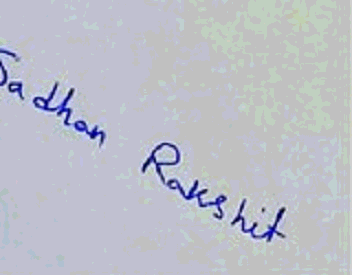 Sadhan Rakshit